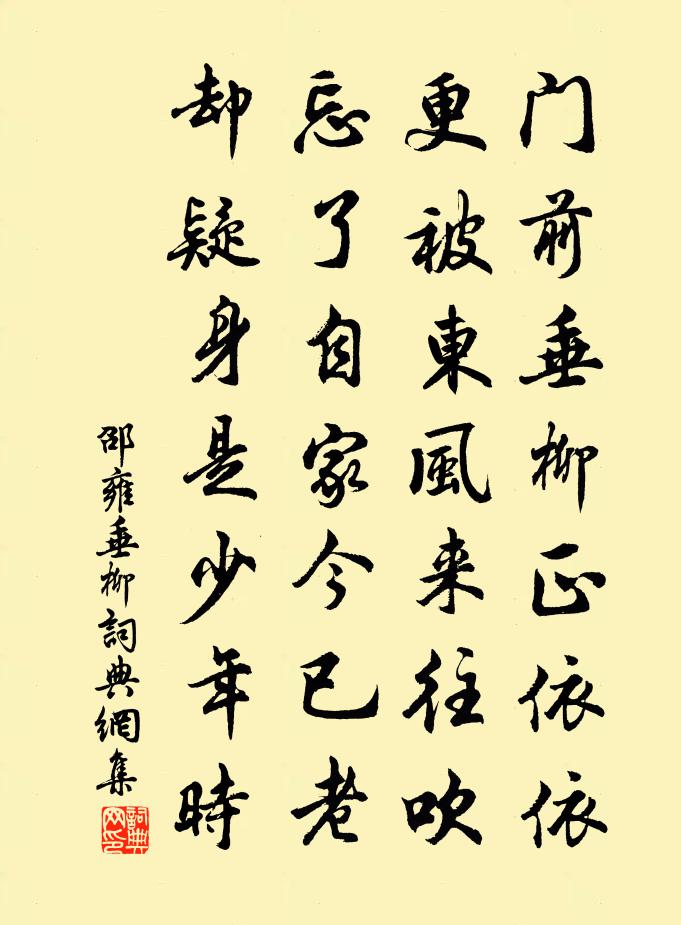 門前垂柳正依依
更被東風来往吹
忘了自家今已老
却疑身是少年時
邵雍垂柳詞典網集
詞典
网印